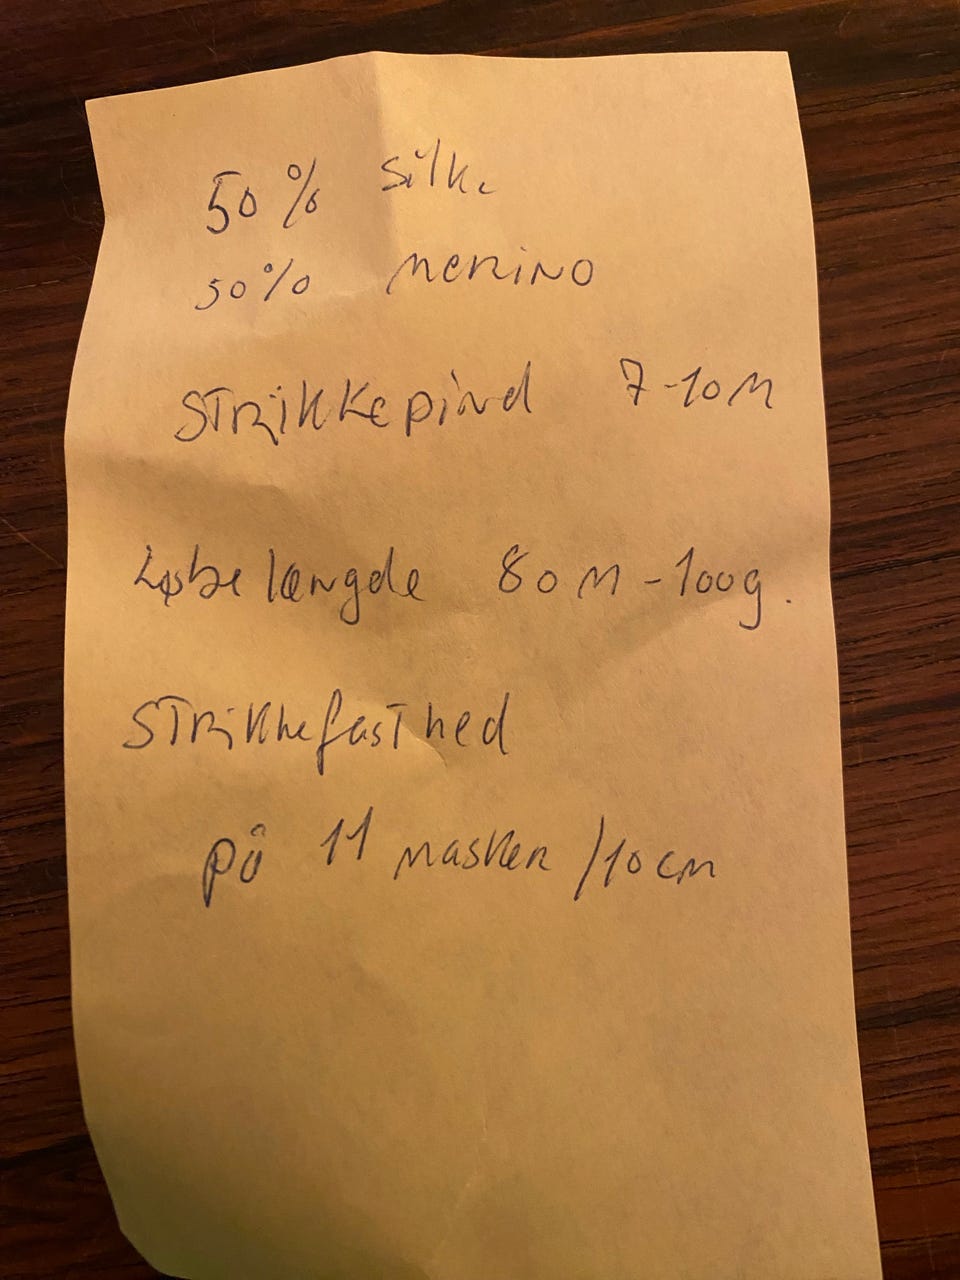 50% silke
50% merino
Strikkepind 7-10 M
Løbe længde 80 M - 100g.
Strikkefasthed
på 11 masker / 10 cm